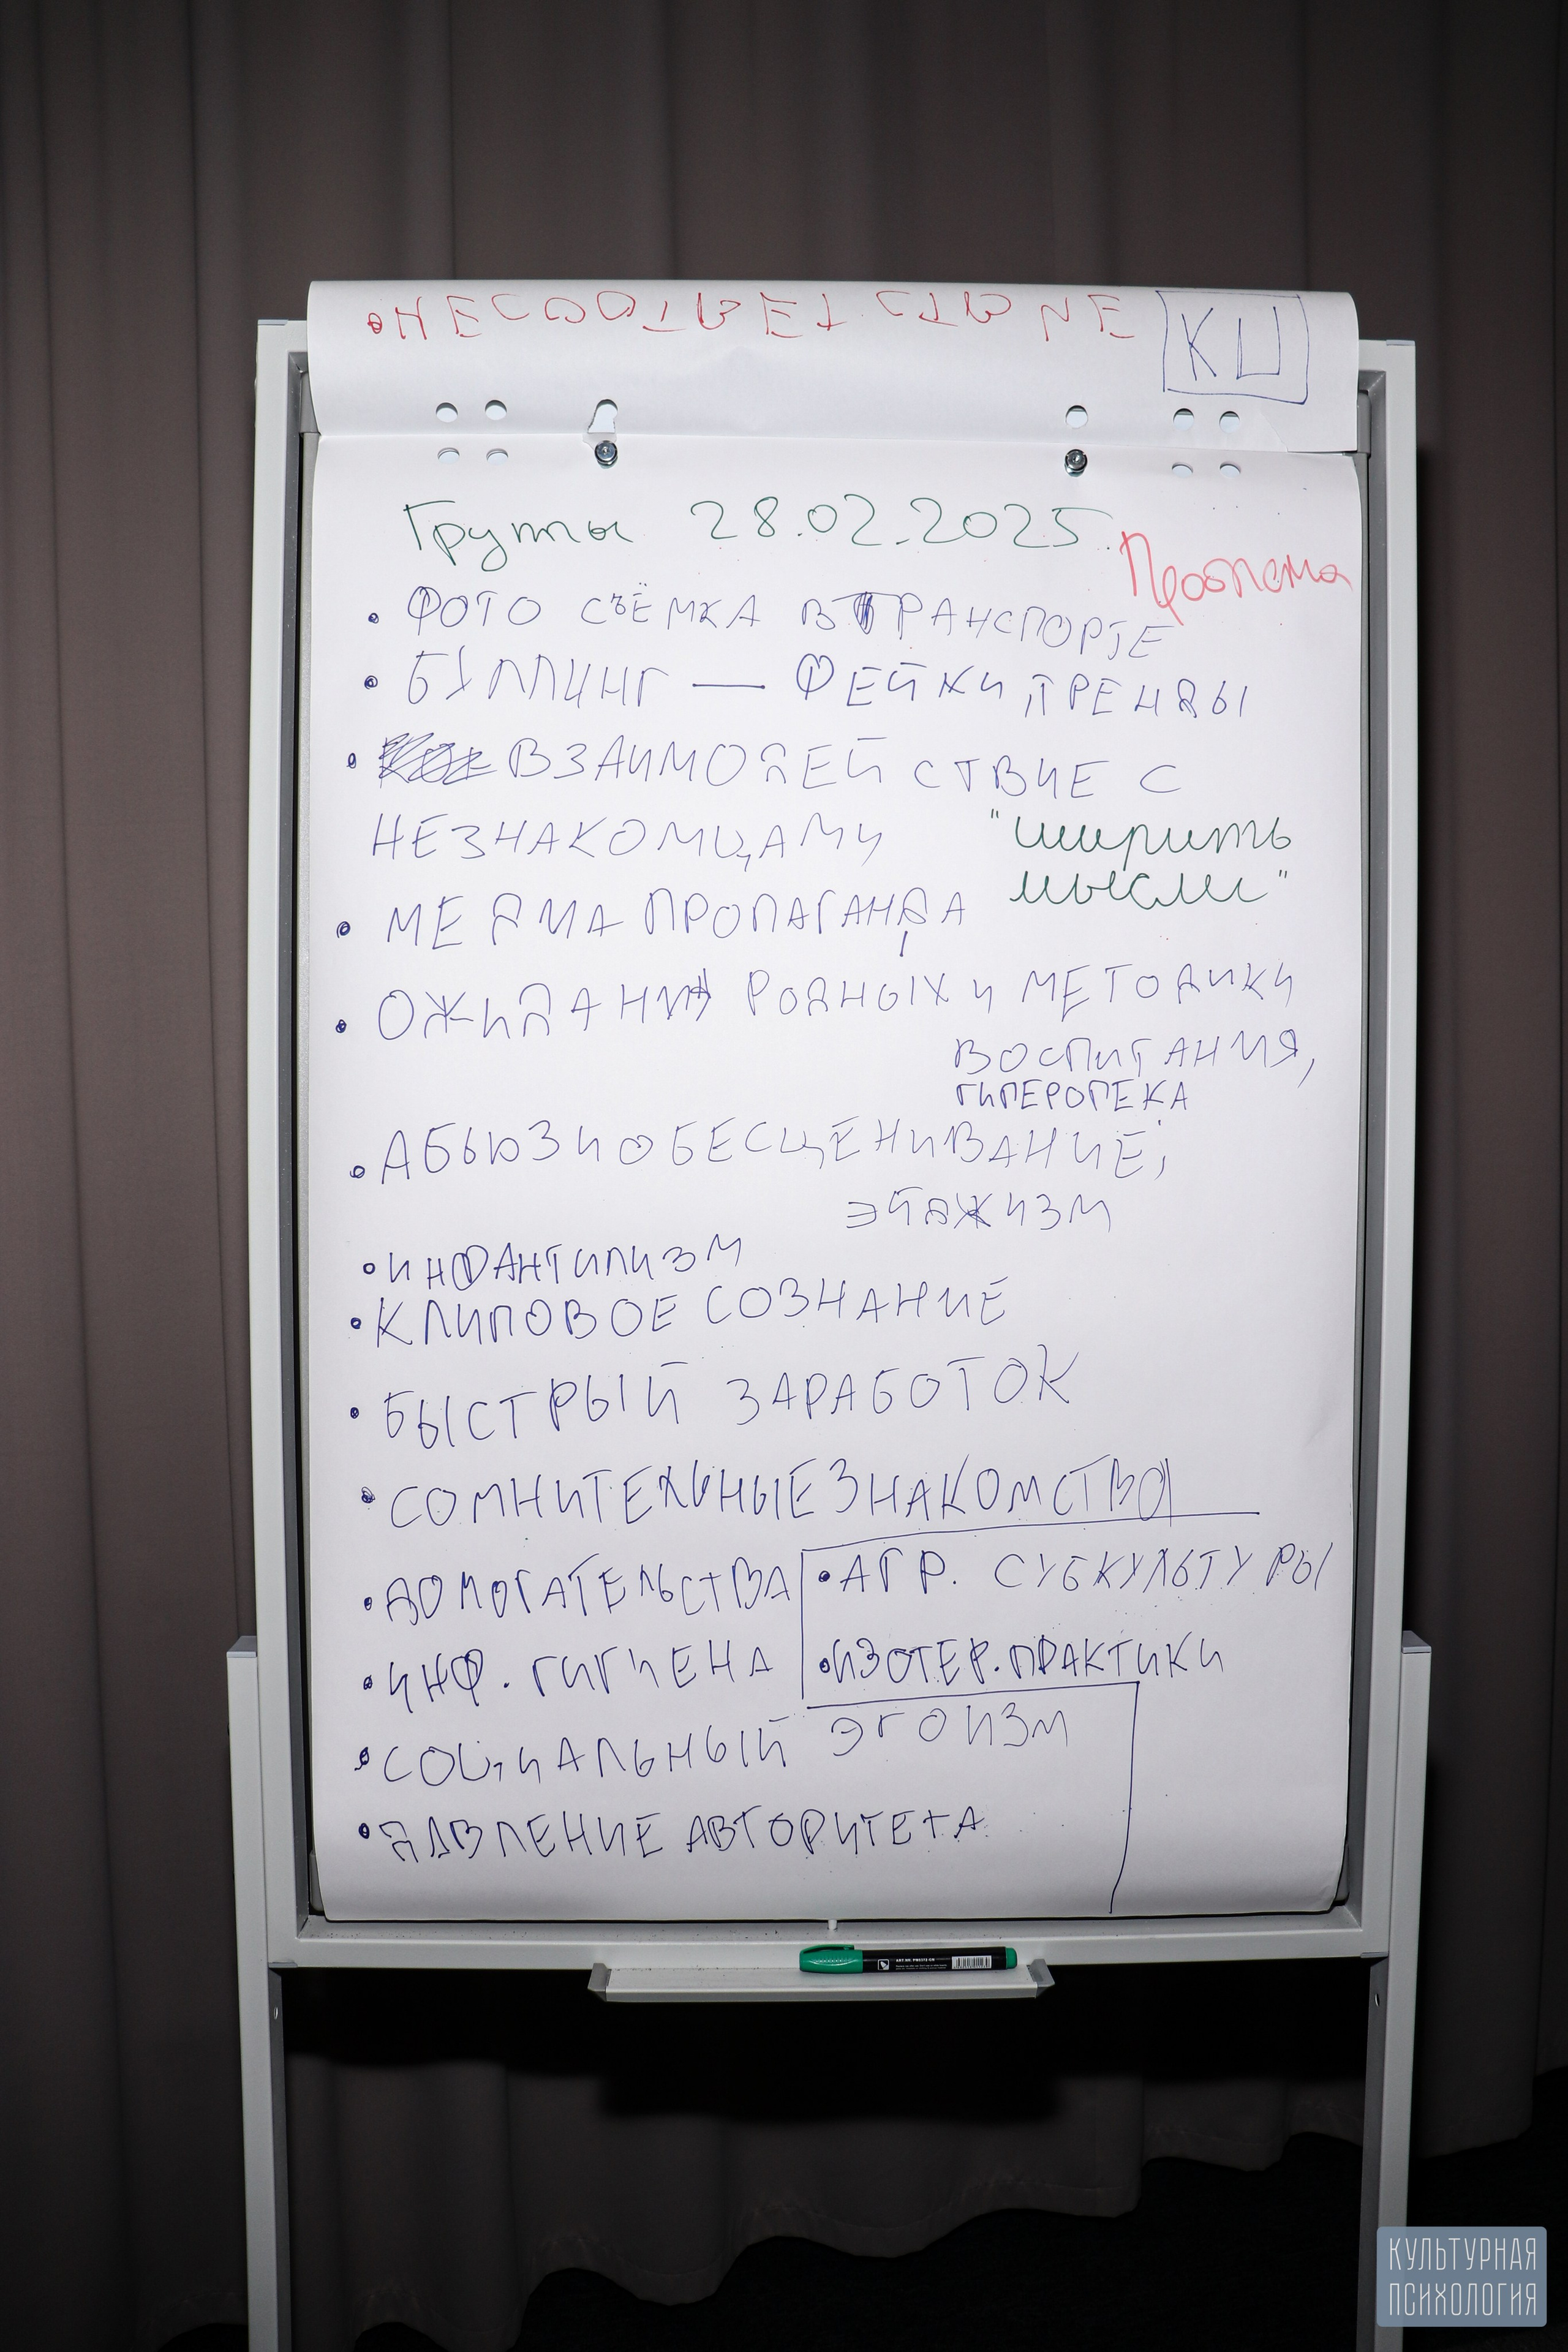 Группы 28.02.2025
Проблема
• ФОТО СЪЁМКА В ТРАНСПОРТЕ
• БУЛЛИНГ — ФЕЙКИ, ТРЕНДЫ
• ВЗАИМОДЕЙСТВИЕ С
НЕЗНАКОМЦАМИ
"ширить
мысли"
• МЕДИА ПРОПАГАНДА
• ОЖИДАНИЯ РОДНЫХ И МЕТОДИКИ
ВОСПИТАНИЯ,
ГИПЕРОПЕКА
• АБЬЮЗ И ОБЕСЦЕНИВАНИЕ;
ЭЙДЖИЗМ
• ИНФАНТИЛИЗМ
• КЛИПОВОЕ СОЗНАНИЕ
• БЫСТРЫЙ ЗАРАБОТОК
• СОМНИТЕЛЬНЫЕ ЗНАКОМСТВА
• ДОМОГАТЕЛЬСТВА
• АГР. СУБКУЛЬТУРЫ
• ИНФ. ГИГИЕНА
• ИЗОТЕР. ПРАКТИКИ
• СОЦИАЛЬНЫЙ ЭГОИЗМ
• ДАВЛЕНИЕ АВТОРИТЕТА
КУЛЬТУРНАЯ
ПСИХОЛОГИЯ